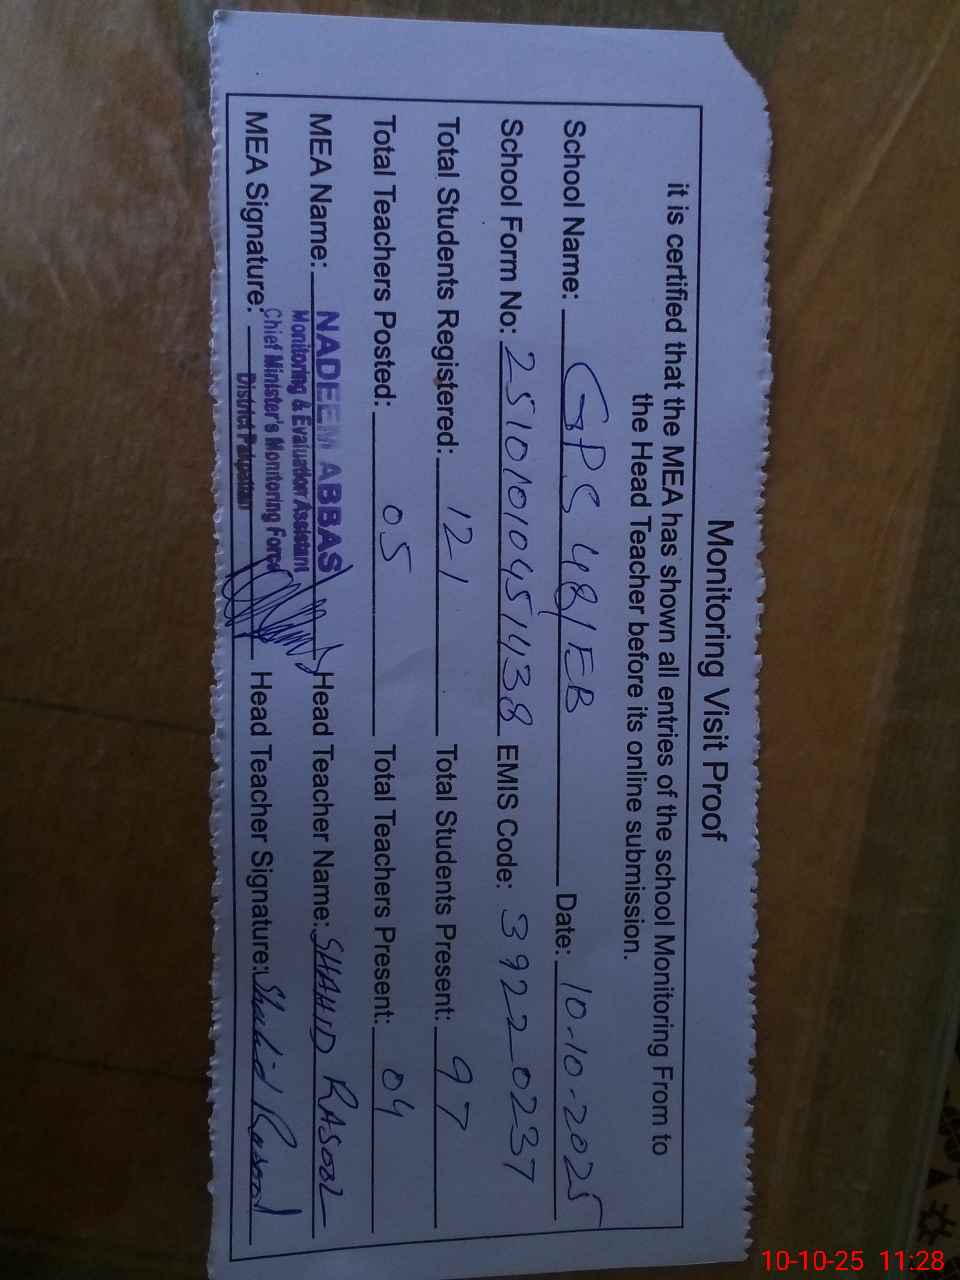 Monitoring Visit Proof
it is certified that the MEA has shown all entries of the school Monitoring From to
the Head Teacher before its online submission.
School Name: GPS 48/EB Date: 10-10-2025
School Form No: 25101010451438 EMIS Code: 39220237
Total Students Registered: 121 Total Students Present: 97
Total Teachers Posted: 05 Total Teachers Present: 04
MEA Name: NADEEM ABBAS Head Teacher Name: SHAHID RASOOL
Monitoring & Evaluation Assistant
Chief Minister's Monitoring Force
MEA Signature: District Pakpattan Head Teacher Signature: Shahid Rasool
10-10-25 11:28